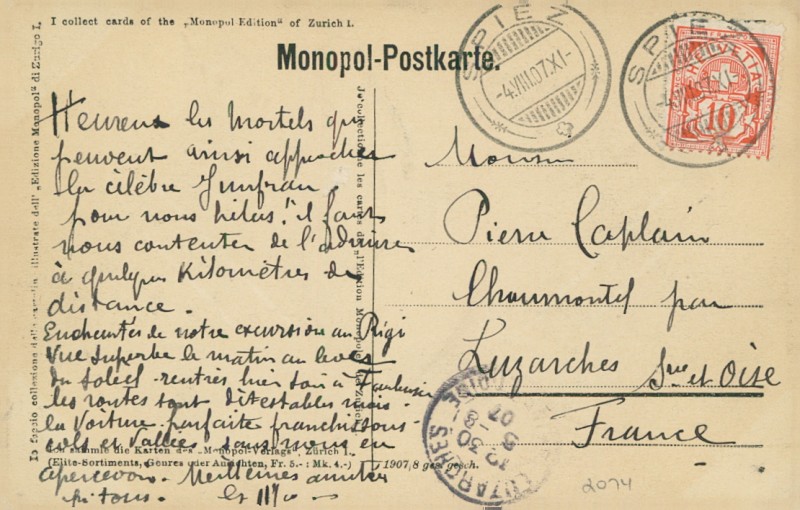 I collect cards of the „Monopol-Edition" of Zurich I.
Monopol-Postkarte.
Io faccio collezione delle cartoline illustrate dell' „Edizione Monopol" di Zurigo I.
Je collectionne les cartes de l'Edition Monopol de Zurich
Heureux les mortels qui
peuvent ainsi approcher
la célèbre Jungfrau.
pour nous hélas! il faut
nous contenter de l'admirer
à quelques Kilomètres de
distance.
Enchantés de notre excursion au Rigi
Vue superbe le matin au lever
du soleil - rentrés hier soir à
les routes sont détestables mais
la voiture parfaite franchissons
cols et vallées sans nous en
apercevoir. Meilleures amitiés
Ich sammle die Karten des „Monopol-Verlags", Zürich I.
(Elite-Sortiments, Genres oder Ansichten, Fr. 5.- : Mk. 4.-)
1907,8 ges. gesch.
SPIEZ
-4.VIII.07.XI-
SPIEZ
-4.VIII.07.XI-
HELVETIA
10
Monsieur
Pierre Caplain
Chaumontel par
Luzarches Sne et Oise
France
LUZARCHES
12 30
5 -8
07
2074